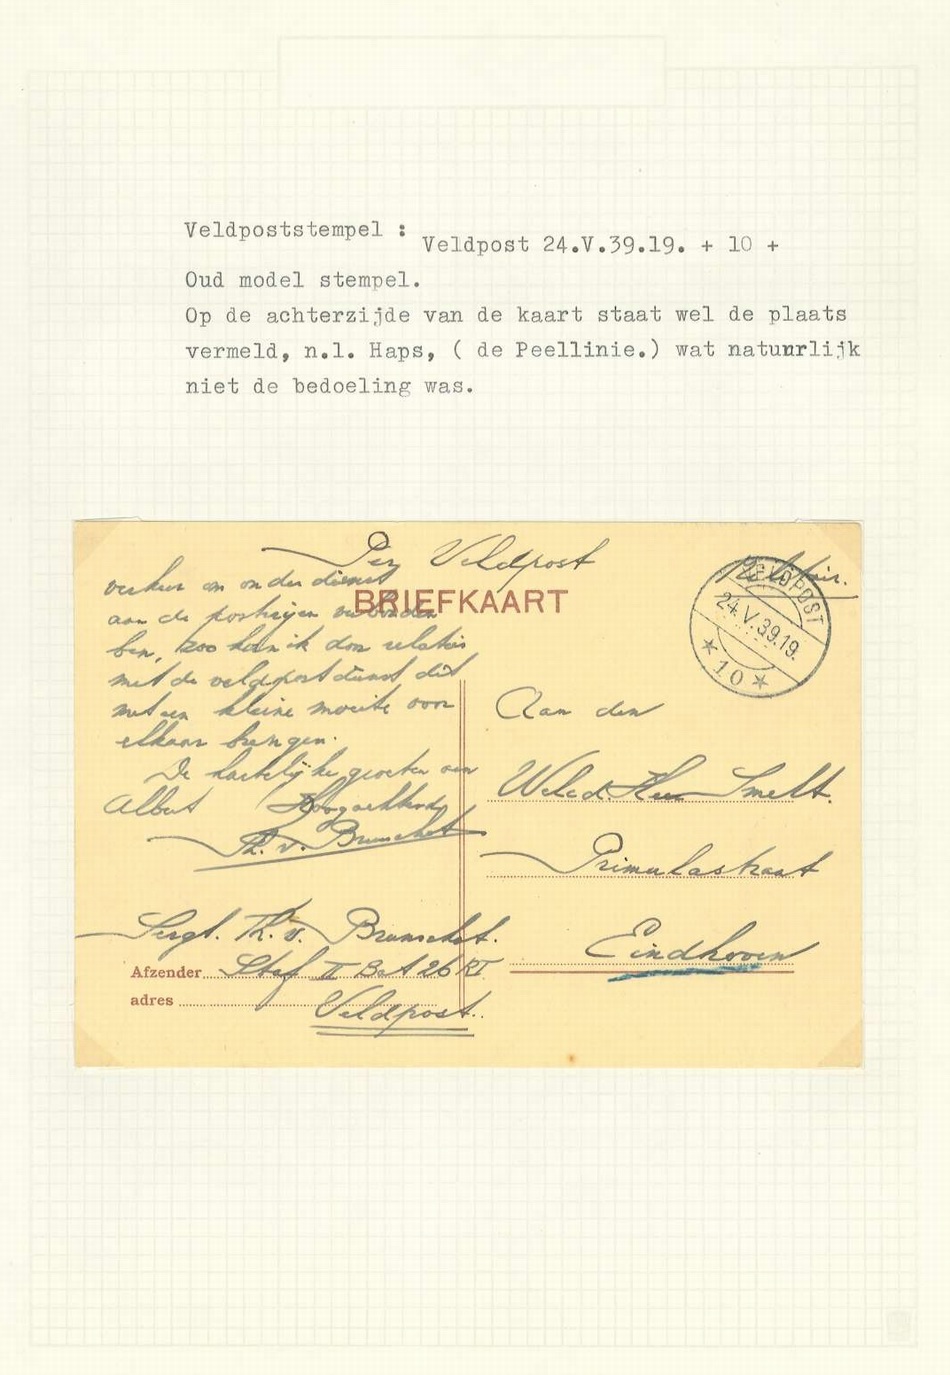 Veldpoststempel :
Veldpost 24.V.39.19. + 10 +
Oud model stempel.
Op de achterzijde van de kaart staat wel de plaats
vermeld, n.l. Haps, ( de Peellinie.) wat natuurlijk
niet de bedoeling was.
Per Veldpost
VELDPOST
24.V.39.19.
* 10 *
BRIEFKAART
verkeer en onder dienst
aan de postrijen verbonden
ben, zoo kan ik door relaties
met de veldpostdienst dit
met een kleine moeite voor
elkaar brengen.
De hartelijke groeten van
Albert
Th. v. Brunschot
Aan den
Weled. Heer Smelt.
Primulastraat
Eindhoven
Sergt. Th. v. Brunschot.
Afzender Staf II Bat 26 RI
adres
Veldpost.